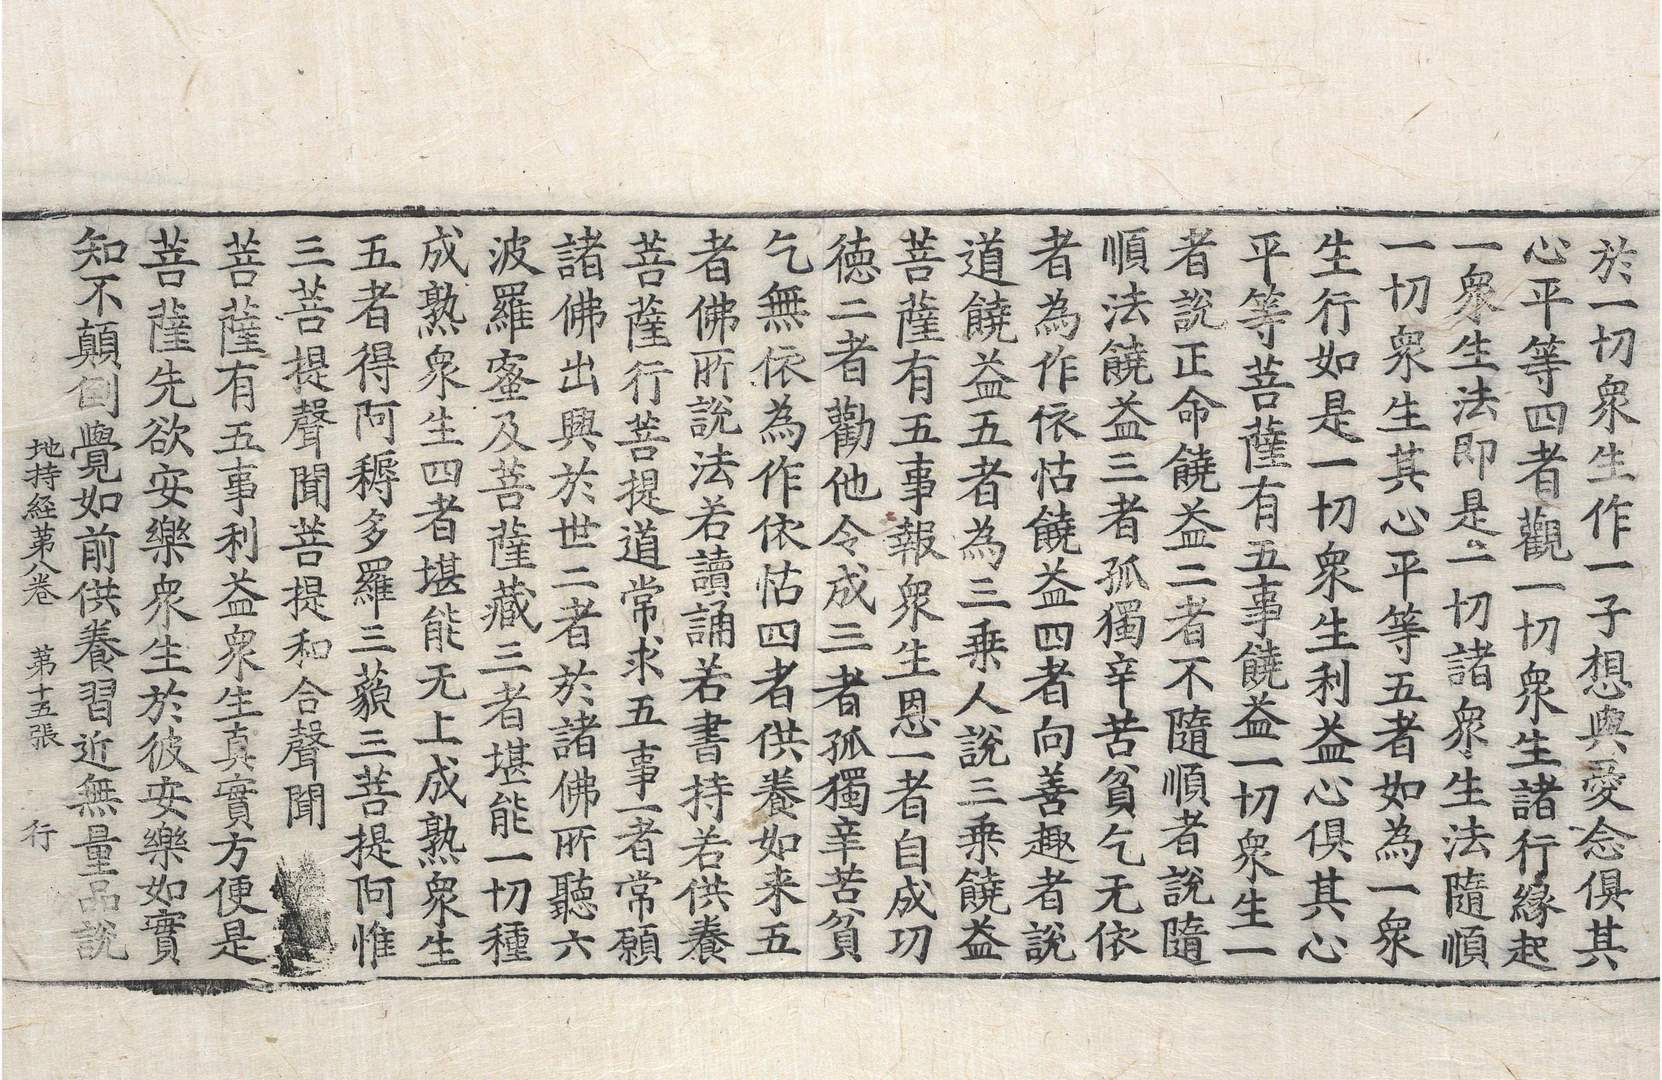 於一切衆生作一子想與愛念俱其
心平等四者觀一切衆生諸行緣起
一衆生法即是一切諸衆生法隨順
一切衆生其心平等五者如為一衆
生行如是一切衆生利益心俱其心
平等菩薩有五事饒益一切衆生一
者說正命饒益二者不隨順者說隨
順法饒益三者孤獨辛苦貧乞无依
者為作依怙饒益四者向善趣者說
道饒益五者為三乗人說三乗饒益
菩薩有五事報衆生恩一者自成功
徳二者勸他令成三者孤獨辛苦貧
乞無依為作依怙四者供養如来五
者佛所說法若讀誦若書持若供養
菩薩行菩提道常求五事一者常願
諸佛出興於世二者於諸佛所聽六
波羅蜜及菩薩藏三者堪能一切種
成熟衆生四者堪能无上成熟衆生
五者得阿耨多羅三藐三菩提阿惟
三菩提聲聞菩提和合聲聞
菩薩有五事利益衆生真實方便是
菩薩先欲安樂衆生於彼安樂如實
知不顛倒覺如前供養習近無量品說
地持経第八卷　第十五張　行